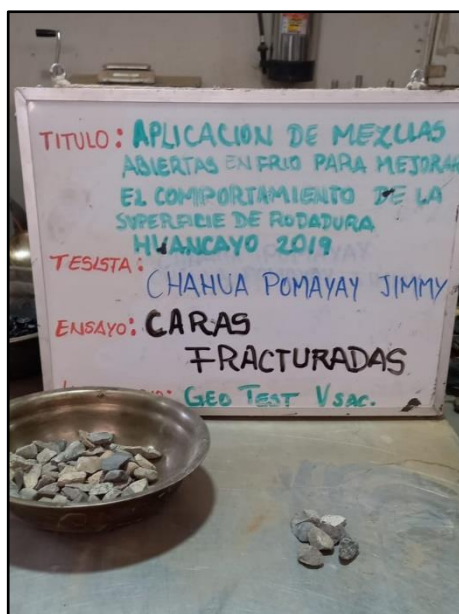 TITULO: APLICACION DE MEZCLAS
ABIERTAS EN FRIO PARA MEJORAR
EL COMPORTAMIENTO DE LA
SUPERFICIE DE RODADURA
HUANCAYO 2019
TESISTA:
CHAHUA POMAYAY JIMMY
ENSAYO: CARAS
FRACTURADAS
GEO TEST V SAC.